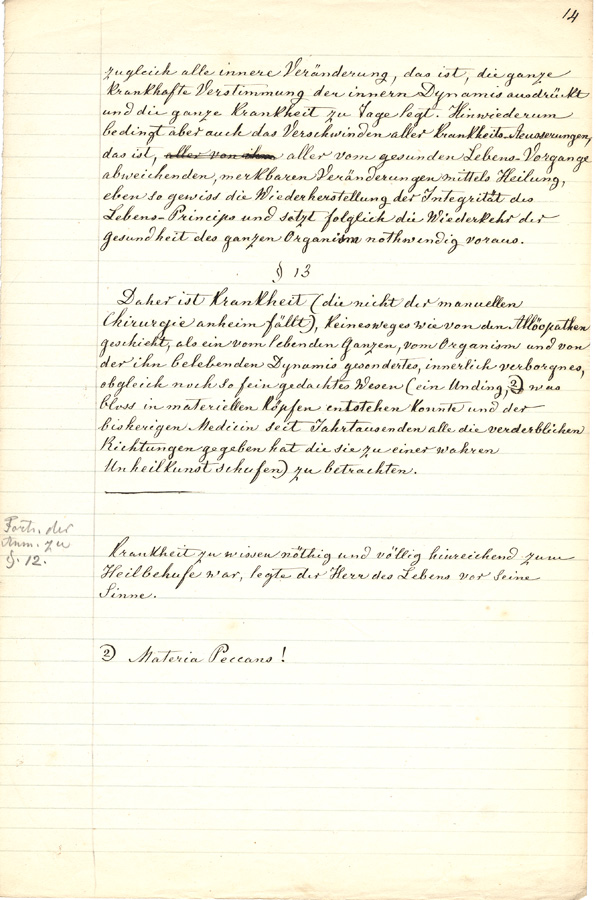 14
zugleich alle innere Veränderung, das ist, die ganze
krankhafte Verstimmung der innern Dynamis ausdrückt
und die ganze Krankheit zu Tage legt. Hinwiederum
bedingt aber auch das Verschwinden aller Krankheits-Aeusserungen,
das ist, aller von ihm aller vom gesunden Lebens-Vorgange
abweichenden, merkbaren Veränderungen mittels Heilung,
eben so gewiss die Wiederherstellung der Integrität des
Lebens-Princips und setzt folglich die Wiederkehr der
Gesundheit des ganzen Organism nothwendig voraus.
§ 13
Daher ist Krankheit (die nicht der manuellen
Chirurgie anheim fällt), keinesweges wie von den Allöopathen
geschieht, als ein vom lebenden Ganzen, vom Organism und von
der ihn belebenden Dynamis gesondertes, innerlich verborgnes,
obgleich noch so fein gedachtes Wesen (ein Unding, 2) was
bloss in materiellen Köpfen entstehen konnte und der
bisherigen Medicin seit Jahrtausenden alle die verderblichen
Richtungen gegeben hat die sie zu einer wahren
Unheilkunst schufen) zu betrachten.
Forts. der
Anm. zu
§. 12.
Krankheit zu wissen nöthig und völlig hinreichend zum
Heilbehufe war, legte der Herr des Lebens vor seine
Sinne.
2) Materia Peccans!